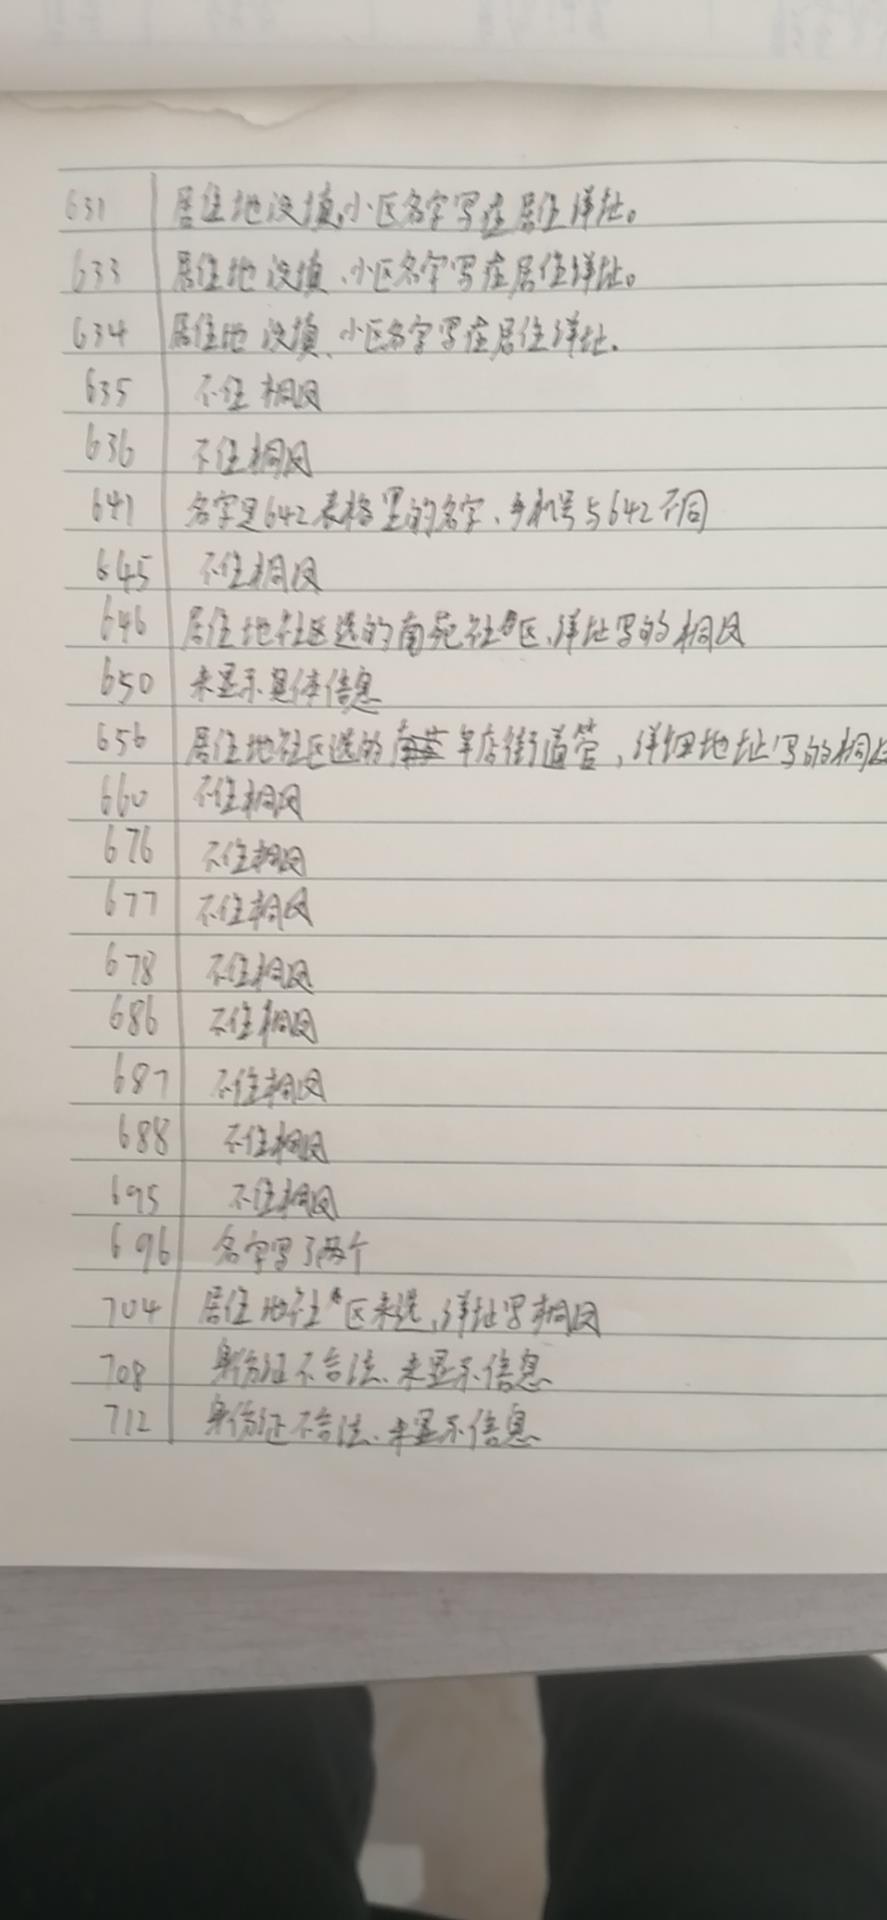 631 居住地没填,小区名字写在居住详址。
633 居住地没填、小区名字写在居住详址。
634 居住地没填、小区名字写在居住详址.
635 不住桐凤
636 不住桐凤
641 名字是642表格里的名字、手机号与642不同
645 不住桐凤
646 居住地社区选的南苑社区、详址写的桐凤
650 未显示具体信息
656 居住地社区选的羊店街道管,详细地址写的桐
660 不住桐凤
676 不住桐凤
677 不住桐凤
678 不住桐凤
686 不住桐凤
687 不住桐凤
688 不住桐凤
695 不住桐凤
696 名字写了两个
704 居住地社区未选、详址写桐凤
708 身份证不合法、未显示信息
712 身份证不合法、未显示信息